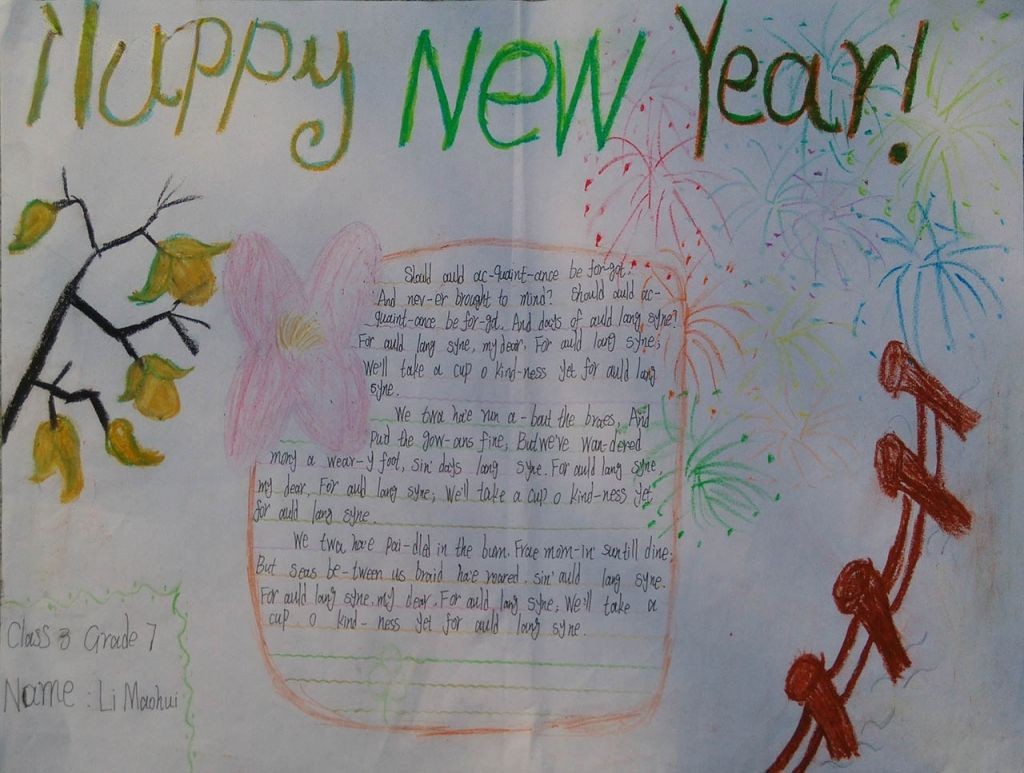 Happy New Year!
Should auld ac-quaint-ance be for-got.
And nev-er brought to mind? Should auld ac-
quaint-ance be for-got. And days of auld lang syne?
For auld lang syne, my dear, For auld lang syne;
We'll take a cup o kind-ness yet for auld lang
syne.
We twa have run a-bout the braes, And
pud the gow-ans fine; But we've wan-dered
mony a wear-y foot, sin' days lang syne. For auld lang syne,
my dear, For auld lang syne; We'll take a cup o kind-ness yet
for auld lang syne.
We twa have pai-dled in the burn. Frae morn-in sun till dine;
But seas be-tween us braid have roared. sin' auld lang syne.
For auld lang syne, my dear, For auld lang syne; We'll take a
cup o kind-ness yet for auld lang syne.
Class 3 Grade 7
Name : Li Maohui